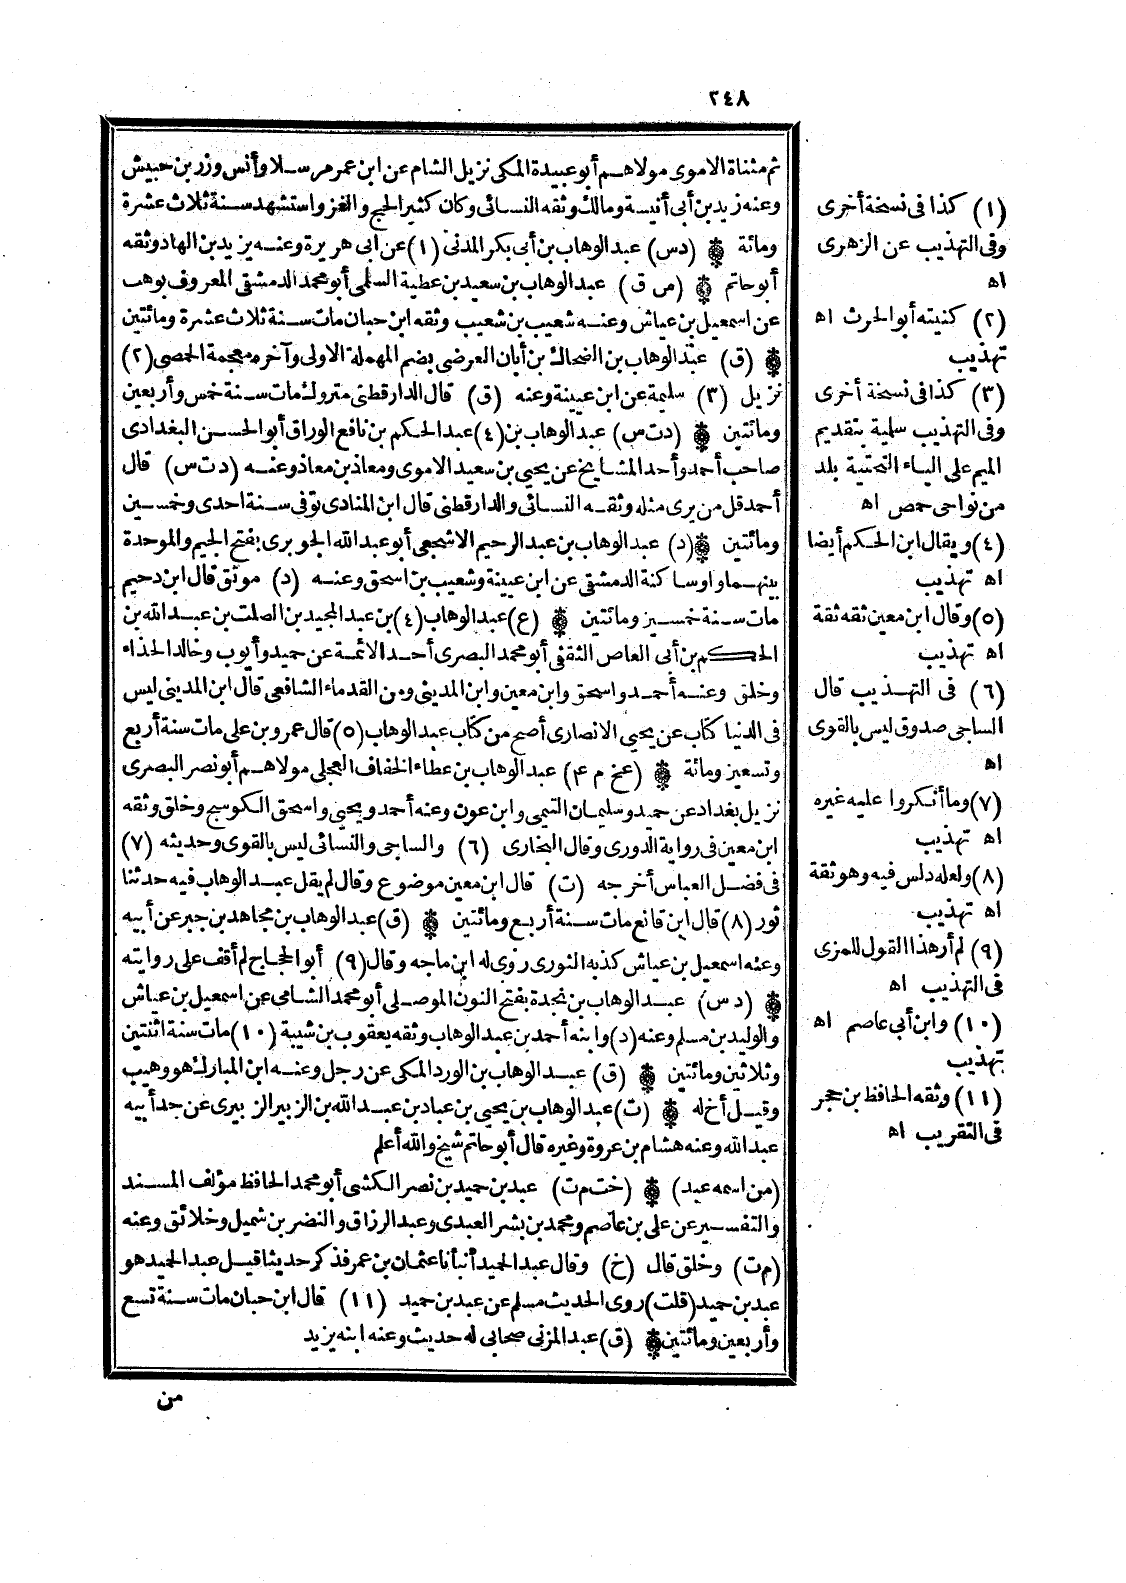 ٢٤٨
ثم مثناة الاموى مولاهم أبو عبيدة المكى نزيل الشام عن ابن عمر مرسلا وأنس وزر بن حبيش
وعنه زيد بن أبى أنيسة ومالك وثقه النسائى وكان كثير الحج والغزو استشهد سنة ثلاث عشرة
ومائة ۞ (دس) عبد الوهاب بن أبى بكر المدنى (١) عن ابى هريرة وعنه يزيد بن الهاد وثقه
أبو حاتم ۞ (ص ق) عبد الوهاب بن سعيد بن عطية السلمى أبو محمد الدمشقى المعروف بوهب
عن اسمعيل بن عياش وعنه شعيب بن شعيب وثقه ابن حبان مات سنة ثلاث عشرة ومائتين
۞ (ق) عبد الوهاب بن الضحاك بن أبان العرضى بضم المهملة الاولى وآخره معجمة الحمصى (٢)
نزيل (٣) سليمة عن ابن عيينة وعنه (ق) قال الدارقطنى متروك مات سنة خمس وأربعين
ومائتين ۞ (دت س) عبد الوهاب بن (٤) عبد الحكم بن نافع الوراق أبو الحسن البغدادى
صاحب أحمد وأحد المشايخ عن يحيى بن سعيد الاموى ومعاذ بن معاذ وعنه (دت س) قال
أحمد قل من يرى مثله وثقه النسائى والدارقطنى قال ابن المنادى توفى سنة احدى وخمسين
ومائتين ۞ (د) عبد الوهاب بن عبد الرحيم الاشجعى أبو عبد الله الجوبرى بفتح الجيم والموحدة
بينهما واو ساكنة الدمشقى عن ابن عيينة وشعيب بن اسحق وعنه (د) موثق قال ابن دحيم
مات سنة خمسين ومائتين ۞ (ع) عبد الوهاب (٤) بن عبد المجيد بن الصلت بن عبد الله بن
الحكم بن أبى العاص الثقفى أبو محمد البصرى أحد الائمة عن حميد وأيوب وخالد الحذاء
وخلق وعنه أحمد واسحق وابن معين وابن المدينى ومن القدماء الشافعى قال ابن المدينى ليس
فى الدنيا كتاب عن يحيى الانصارى أصح من كتاب عبد الوهاب (٥) قال عمرو بن على مات سنة أربع
وتسعين ومائة ۞ (عخ م ٤) عبد الوهاب بن عطاء الخفاف العجلى مولاهم أبو نصر البصرى
نزيل بغداد عن حميد وسليمان التيمى وابن عون وعنه أحمد ويحيى واسحق الكوسج وخلق وثقه
ابن معين فى رواية الدورى وقال البخارى (٦) والساجى والنسائى ليس بالقوى وحديثه (٧)
فى فضل العباس أخرجه (ت) قال ابن معين موضوع وقال لم يقل عبد الوهاب فيه حدثنا
ثور (٨) قال ابن قانع مات سنة أربع ومائتين ۞ (ق) عبد الوهاب بن مجاهد بن جبر عن أبيه
وعنه اسمعيل بن عياش كذبه الثورى روى له ابن ماجه وقال (٩) أبو الحجاج لم أقف على روايته
۞ (د س) عبد الوهاب بن نجدة بفتح النون الموصلى أبو محمد الشامى عن اسمعيل بن عياش
والوليد بن مسلم وعنه (د) وابنه أحمد بن عبد الوهاب وثقه يعقوب بن شيبة (١٠) مات سنة اثنتين
وثلاثين ومائتين ۞ (ق) عبد الوهاب بن الورد المكى عن رجل وعنه ابن المبارك هو وهيب
وقيل أخ له ۞ (ت) عبد الوهاب بن يحيى بن عباد بن عبد الله بن الزبير الزبيرى عن جد أبيه
عبد الله وعنه هشام بن عروة وغيره قال أبو حاتم شيخ والله أعلم
(من اسمه عبد) ۞ (خت م ت) عبد بن حميد بن نصر الكشى أبو محمد الحافظ مؤلف المسند
والتفسير عن على بن عاصم ومحمد بن بشر العبدى وعبد الرزاق والنضر بن شميل وخلائق وعنه
(م ت) وخلق قال (خ) وقال عبد الحميد أنبأنا عثمان بن عمر فذكر حديثا قيل عبد الحميد هو
عبد بن حميد (قلت) روى الحديث مسلم عن عبد بن حميد (١١) قال ابن حبان مات سنة تسع
وأربعين ومائتين ۞ (ق) عبد المزنى صحابى له حديث وعنه ابنه يزيد
من
(١) كذا فى نسخة أخرى
وفى التهذيب عن الزهرى
اه
(٢) كنيته أبو الحرث اه
تهذيب
(٣) كذا فى نسخة أخرى
وفى التهذيب سلمية بتقديم
الميم على الياء التحتية بلد
من نواحى حمص اه
(٤) ويقال ابن الحكم أيضا
اه تهذيب
(٥) وقال ابن معين ثقه ثقة
اه تهذيب
(٦) فى التهذيب قال
الساجى صدوق ليس بالقوى
اه
(٧) وما أنكروا عليه غيره
اه تهذيب
(٨) ولعله دلس فيه وهو ثقة
اه تهذيب
(٩) لم أر هذا القول للمزى
فى التهذيب اه
(١٠) وابن أبى عاصم اه
تهذيب
(١١) وثقه الحافظ بن حجر
فى التقريب اه